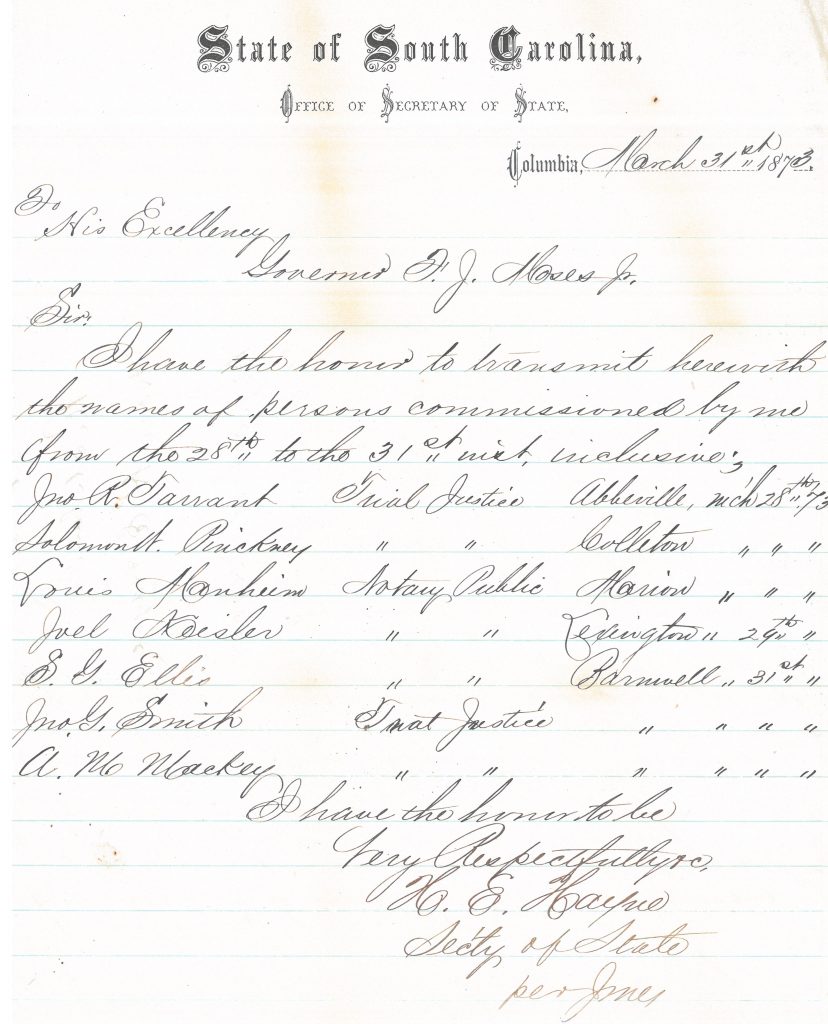 State of South Carolina,
Office of Secretary of State,
Columbia, March 31st 1873.
To
His Excellency
Governor F. J. Moses Jr.
Sir.
I have the honor to transmit herewith
the names of persons commissioned by me
from the 28th to the 31st inst, inclusive;
Jno. R. Tarrant Trial Justice Abbeville, mch 28th, 73
Solomon Pinckney " " Colleton " " "
Louis Manheim Notary Public Marion " " "
Joel Keisler " " Lexington " 29th "
S. G. Ellis " " Barnwell " 31st "
Jno. G. Smith Trial Justice " " " "
A. M Mackey " " " " " "
I have the honor to be
Very Respectfully &c,
H. E. Hayne
Secty of State
per